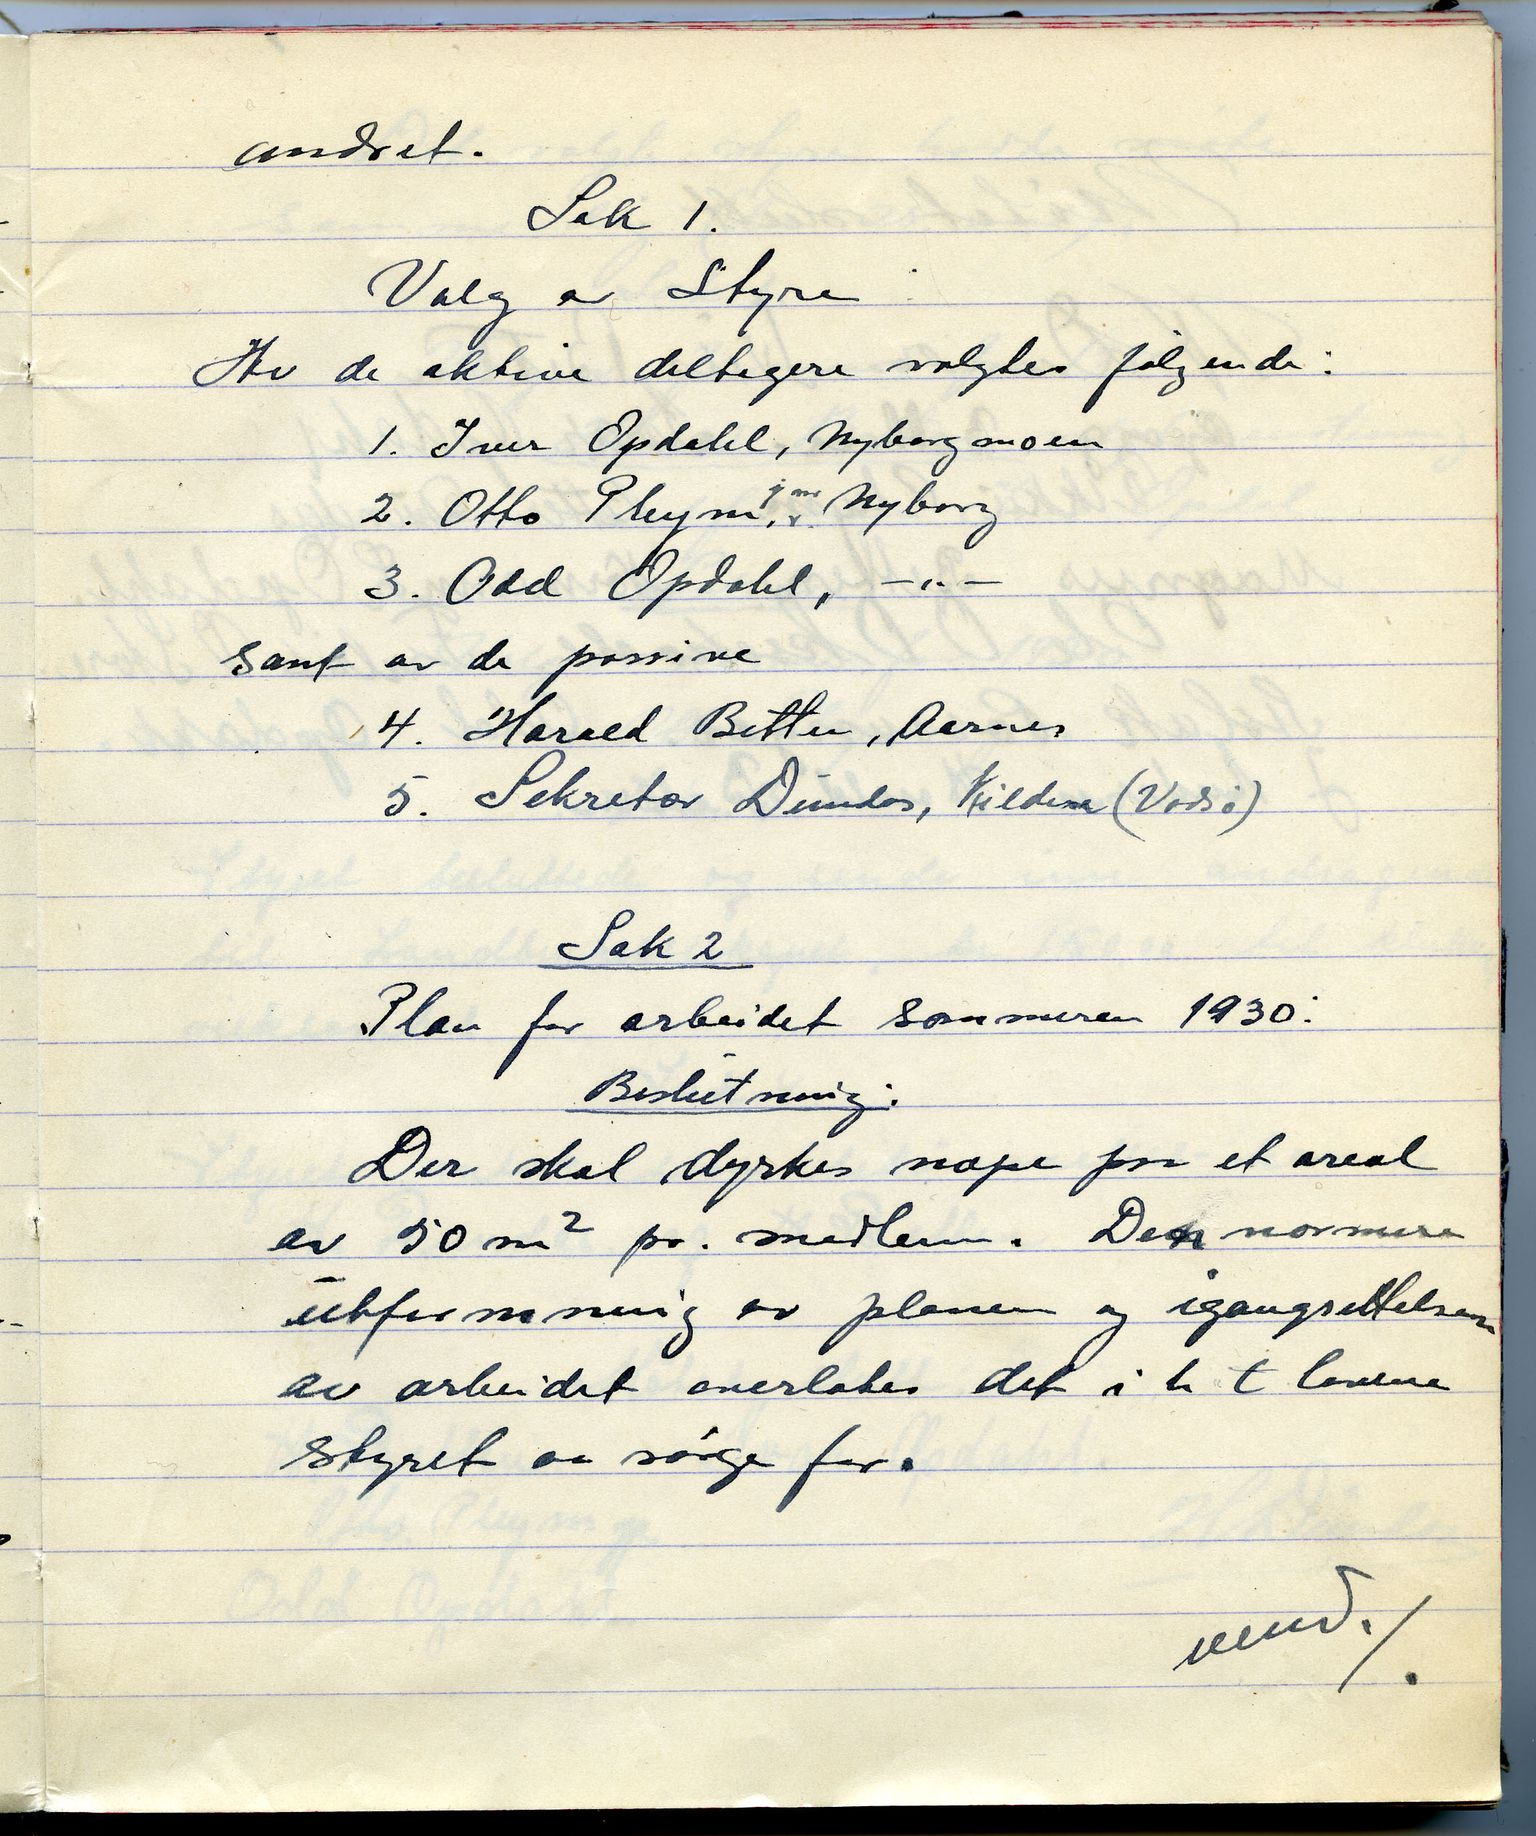 andret.
Sak 1.
Valg av Styre
Av de aktive deltagere valgtes følgende:
1. Iver Opdahl, Nyborgmoen
2. Otto Pleym, jnr. Nyborg
3. Odd Opdahl, —"—
samt av de passive
4. Harald Betten, Aarnes
5. Sekretær Dŭndas, Kilden (Vadsö)
Sak 2
Plan for arbeidet sommeren 1930:
Beslŭtning:
Der skal dyrkes nepe paa et areal
av 50 m² pr. medlem. Den nærmere
ŭtformning av planen og igangsettelsen
av arbeidet overlates det i h t lovene
styret aa sörge for.
vend./.